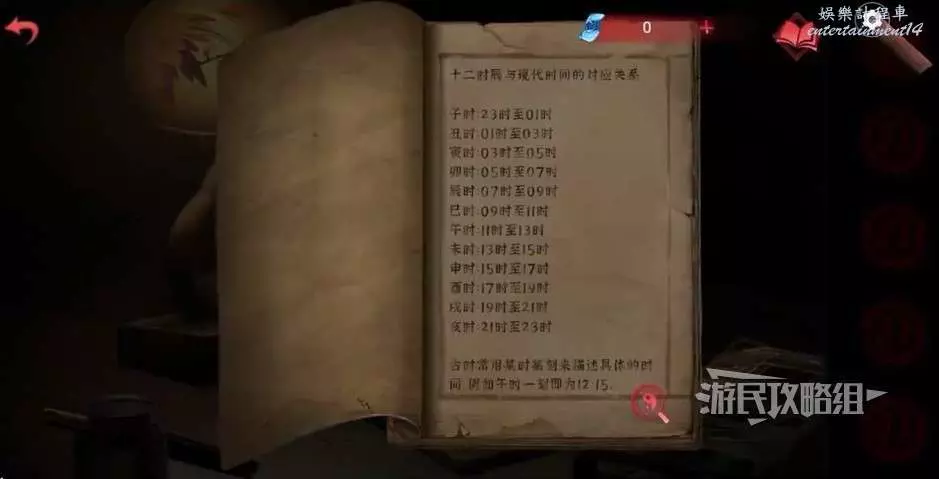 娛樂計程車
entertainment14
0
+
十二时辰与现代时间的对应关系
子时:23时至01时
丑时:01时至03时
寅时:03时至05时
卯时:05时至07时
辰时:07时至09时
巳时:09时至11时
午时:11时至13时
未时:13时至15时
申时:15时至17时
酉时:17时至19时
戌时:19时至21时
亥时:21时至23时
古时常用某时某刻来描述具体的时
间 例如午时一刻即为12:15.
游民攻略组